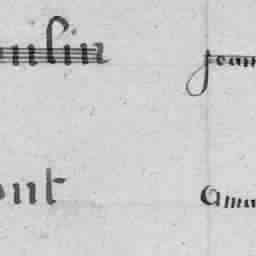 ulin Jean
ont Ama